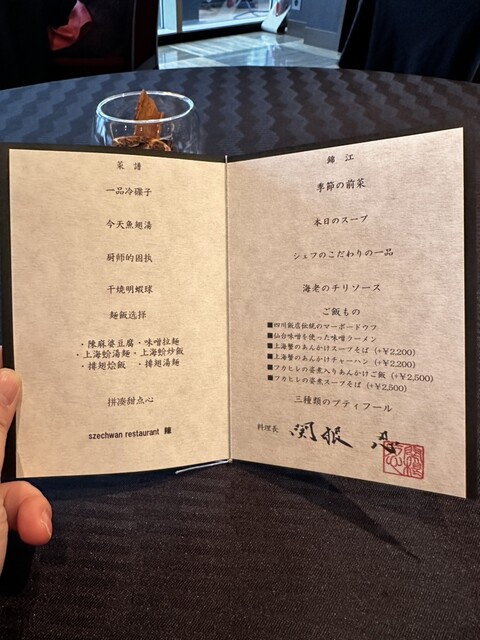 菜 譜
一品冷碟子
今天魚翅湯
厨師的固执
干燒明蝦球
麺飯选择
・陳麻婆豆腐・味噌拉麺
・上海蛤湯麺・上海蛤炒飯
・排翅烩飯 ・排翅湯麺
拼湊甜点心
szechwan restaurant 陳
錦 江
季節の前菜
本日のスープ
シェフのこだわりの一品
海老のチリソース
ご飯もの
■四川飯店伝統のマーボードウフ
■仙台味噌を使った味噌ラーメン
■上海蟹のあんかけスープそば (+￥2,200)
■上海蟹のあんかけチャーハン (+￥2,200)
■フカヒレの姿煮入りあんかけご飯 (+￥2,500)
■フカヒレの姿煮スープそば (+￥2,500)
三種類のプティフール
料理長 関根 忍